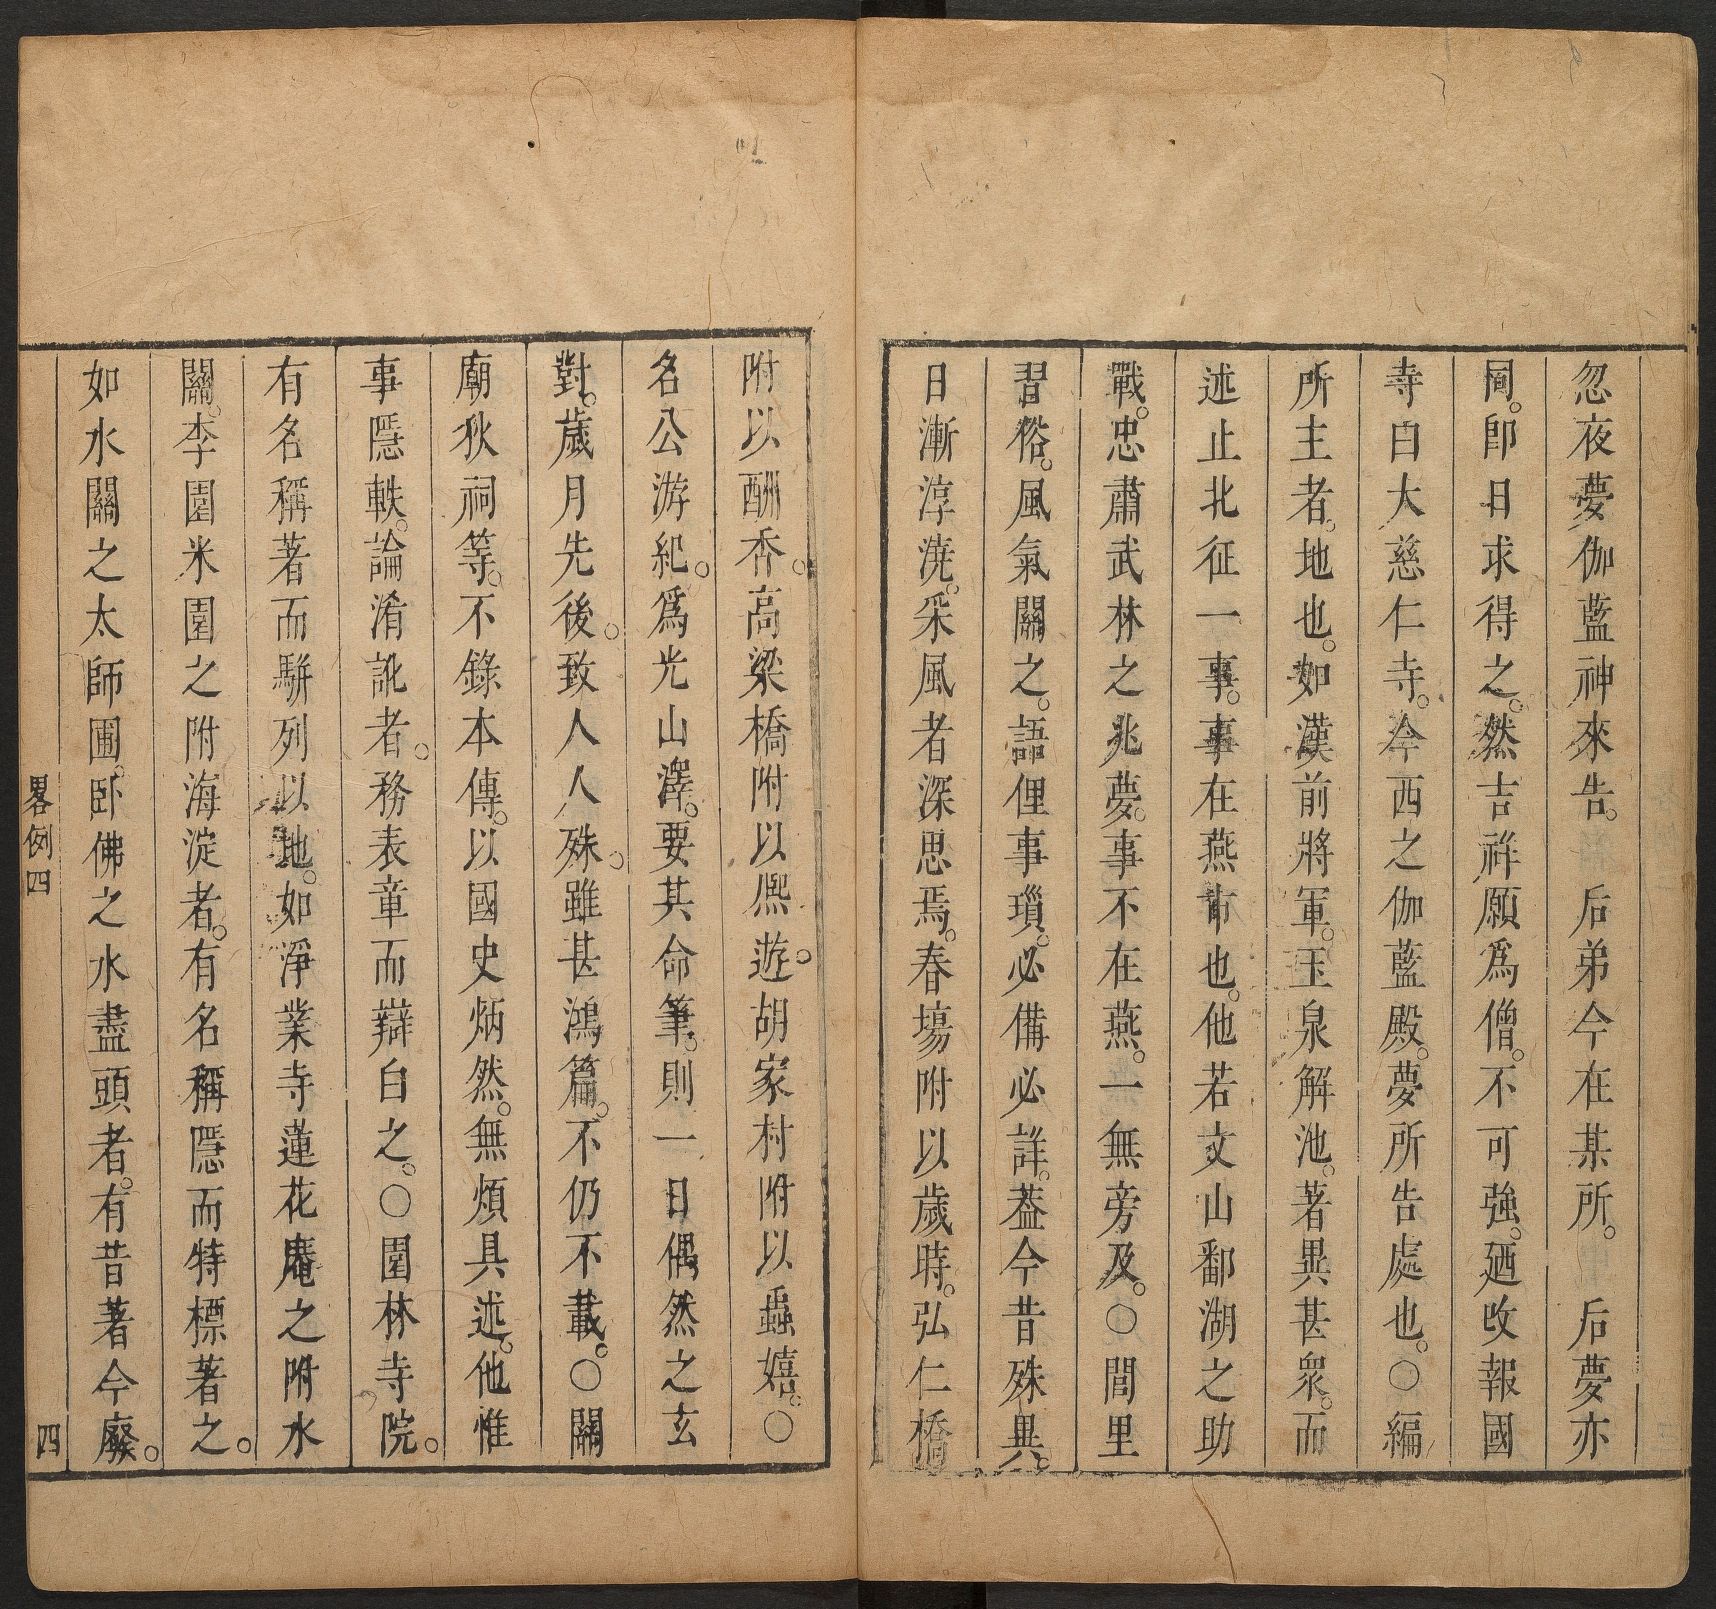 忽夜夢伽藍神來告。 后弟今在某所。 后夢亦
同。卽日求得之。然吉祥願爲僧。不可強。廼改報國
寺曰大慈仁寺。今西之伽藍殿。夢所告處也。〇編
所主者。地也。如漢前將軍。玉泉解池。著異甚衆。而
述止北征一事。事在燕市也。他若文山鄱湖之助
戰。忠肅武林之兆夢。事不在燕。一無旁及。〇閭里
習俗。風氣關之。語俚事瑣。必備必詳。葢今昔殊異。
日漸淳澆。采風者深思焉。春塲附以歲時。弘仁橋
附以酬香。高梁橋附以熈遊。胡家村附以蟲嬉。〇
名公游紀。爲光山澤。要其命筆。則一日偶然之玄
對。歲月先後。致人人殊。雖甚鴻篇。不仍不載。〇關
廟狄祠等。不錄本傳。以國史炳然。無煩具述。他惟
事隱軼。論淆訛者。務表章而辯白之。〇園林寺院。
有名稱著而駢列以地。如淨業寺蓮花庵之附水
關。李園米園之附海淀者。有名稱隱而特標著之。
如水關之太師圃。臥佛之水盡頭者。有昔著今廢。
畧例四 四